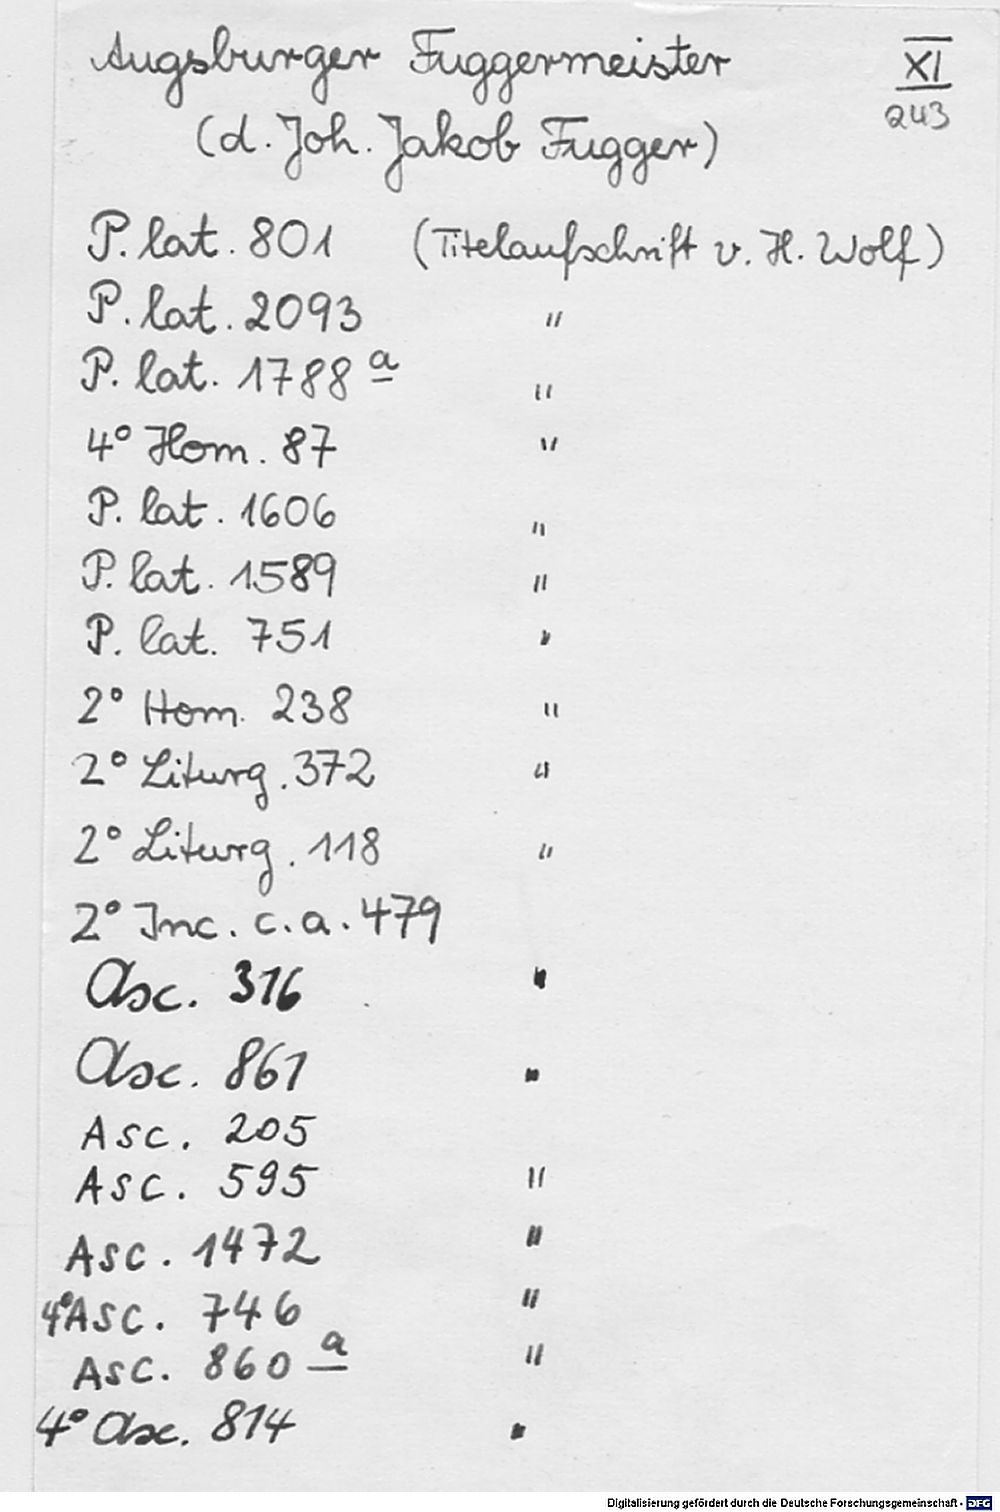 Augsburger Fuggermeister
XI
243
(d. Joh. Jakob Fugger)
P. lat. 801 (Titelaufschrift v. H. Wolf)
P. lat. 2093 "
P. lat. 1788 a "
4° Hom. 87 "
P. lat. 1606 "
P. lat. 1589 "
P. lat. 751 "
2° Hom. 238 "
2° Liturg. 372 "
2° Liturg. 118 "
2° Inc. c. a. 479
Asc. 316 "
Asc. 861 "
Asc. 205
Asc. 595 "
Asc. 1472 "
4° Asc. 746 "
Asc. 860 a "
4° Asc. 814 "
Digitalisierung gefördert durch die Deutsche Forschungsgemeinschaft - DFG